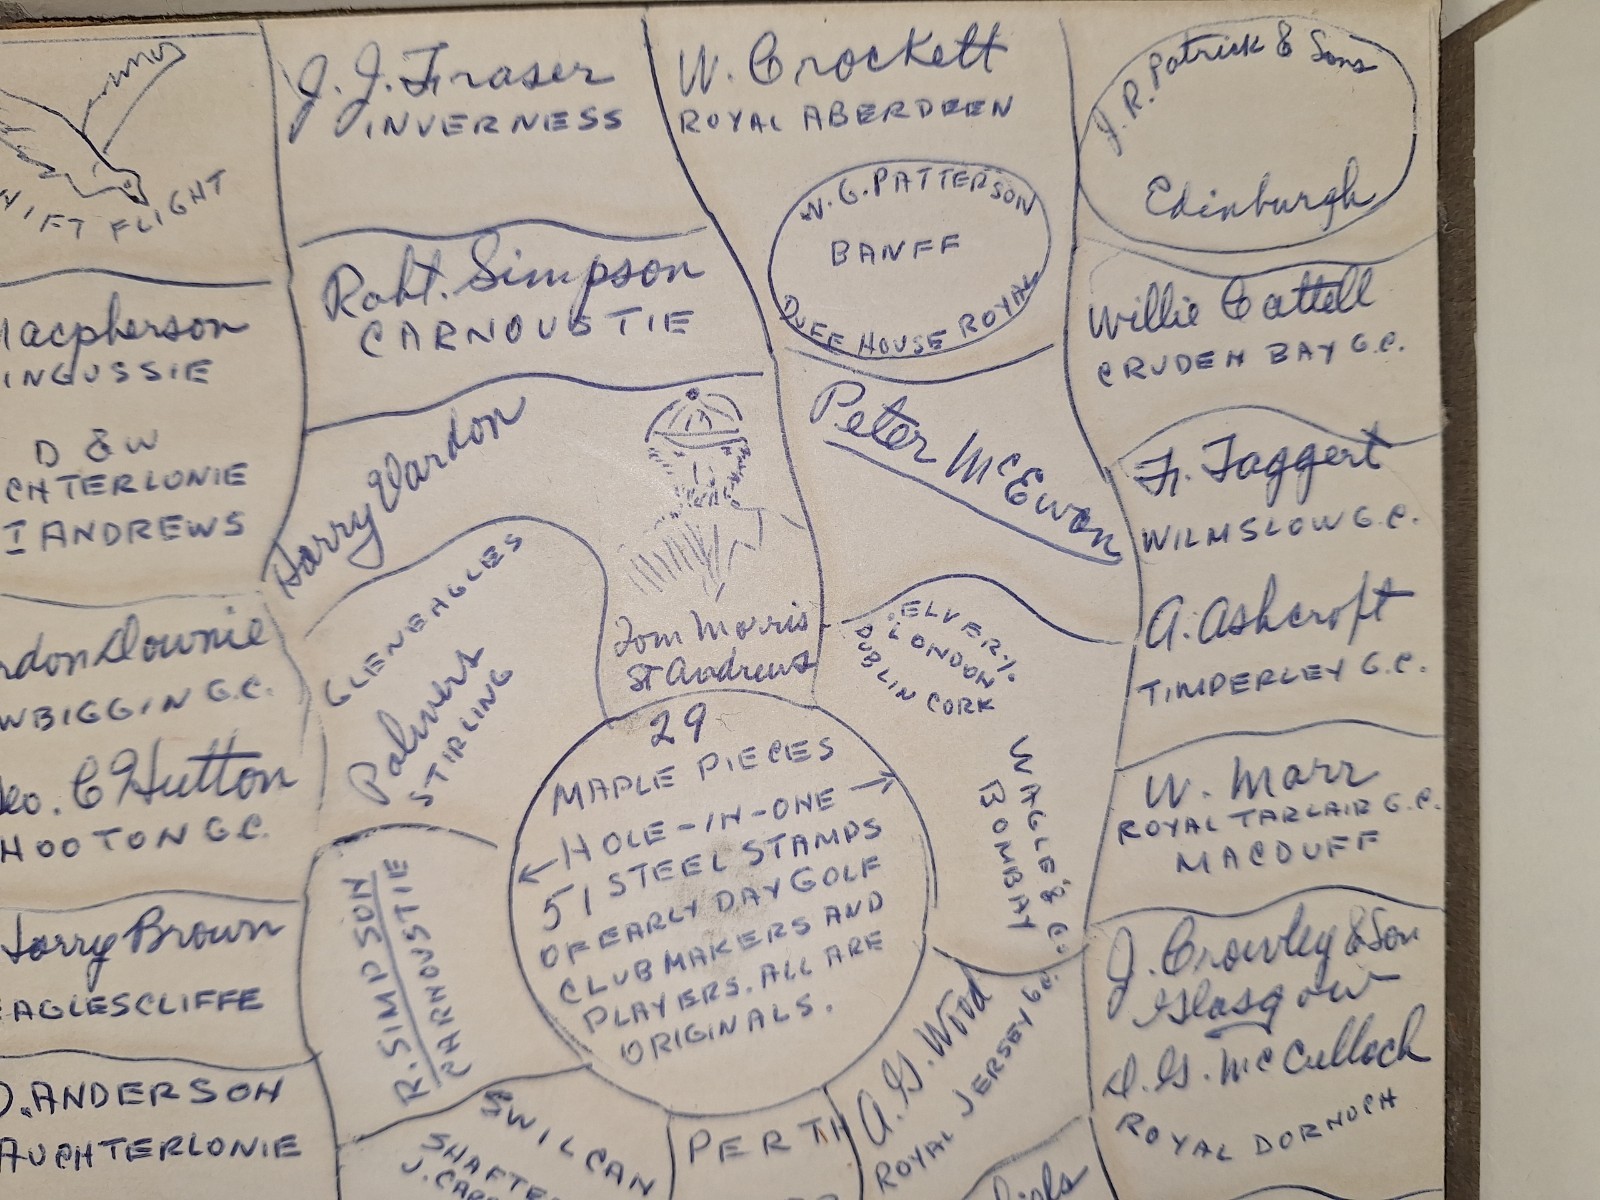 FLIGHT
J. J. Fraser
INVERNESS
W. Crockett
ROYAL ABERDEEN
J. R. Patrick & Sons
Edinburgh
Robt. Simpson
CARNOUSTIE
W. G. PATTERSON
BANFF
DUFF HOUSE ROYAL
Willie Cattell
CRUDEN BAY G.C.
acpherson
INGUSSIE
D & W
CHTERLONIE
T ANDREWS
Harry Vardon
Tom Morris
St Andrews
Peter McEwan
F. Taggert
WILMSLOW G.C.
A. Ashcroft
TIMPERLEY G.C.
rdon Downie
WBIGGIN G.C.
eo. C Hutton
HOOTON G.C.
GLENEAGLES
Palmers
STIRLING
ELVERY.
LONDON
DUBLIN CORK
WAGLE & C.
BOMBAY
W. Marr
ROYAL TARLAIR G.C.
MACDUFF
29
MAPLE PIECES
← HOLE-IN-ONE →
51 STEEL STAMPS
OF EARLY DAY GOLF
CLUB MAKERS AND
PLAYERS. ALL ARE
ORIGINALS.
Harry Brown
EAGLESCLIFFE
R. SIMPSON
CARNOUSTIE
J. Crowley & Son
Glasgow
D. G. McCulloch
ROYAL DORNOCH
D. ANDERSON
AUCHTERLONIE
SWILCAN
SHAFTE
PERTH
A. G. Wood
ROYAL JERSEY G.C.